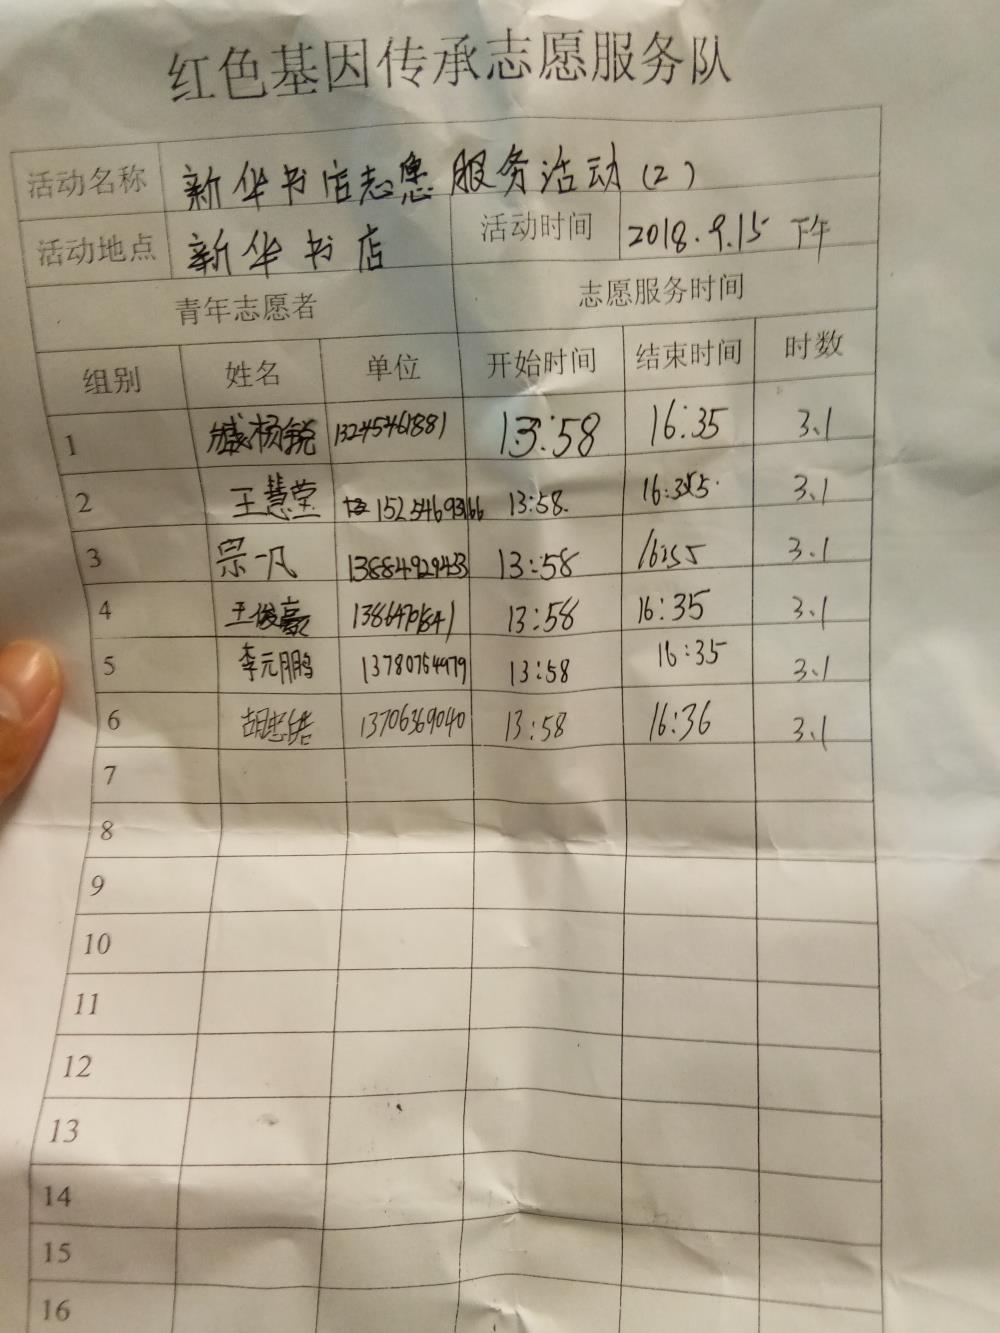 红色基因传承志愿服务队
活动名称 新华书店志愿服务活动(2)
活动地点 新华书店 活动时间 2018.9.15 下午
青年志愿者 志愿服务时间
组别 姓名 单位 开始时间 结束时间 时数
1 臧杨锐 13245461881 13:58 16:35 3.1
2 王慧莹 13:58. 3.1
3 宗一凡 13884929433 13:58 3.1
4 王俊豪 13:58 16:35 3.1
5 李元鹏 13780754979 13:58 16:35 3.1
6 胡忠皓 13706369040 13:58 16:36 3.1
7
8
9
10
11
12
13
14
15
16